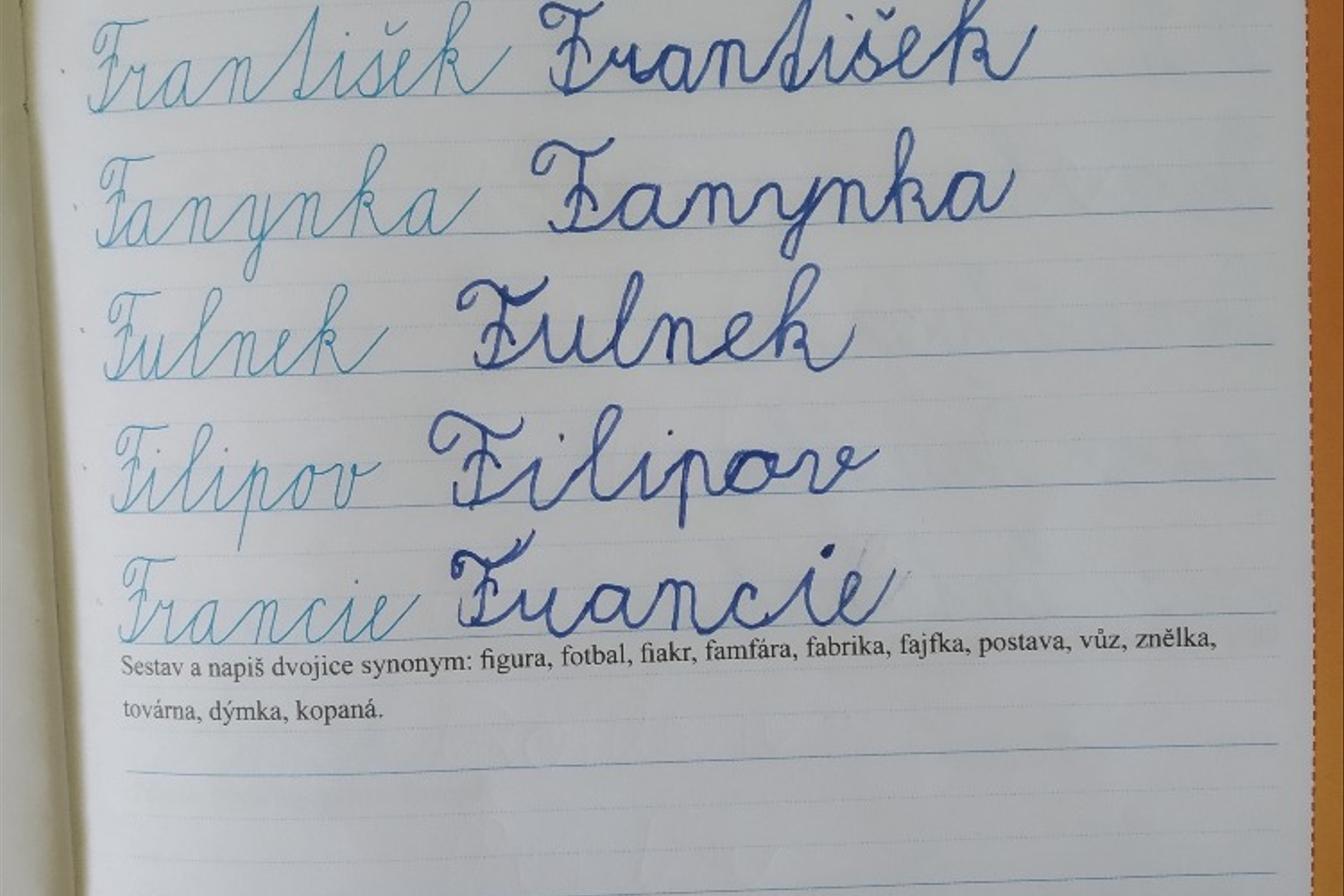 František František
Fanynka Fanynka
Fulnek Fulnek
Filipov Filipov
Francie Francie
Sestav a napiš dvojice synonym: figura, fotbal, fiakr, famfára, fabrika, fajfka, postava, vůz, znělka,
továrna, dýmka, kopaná.